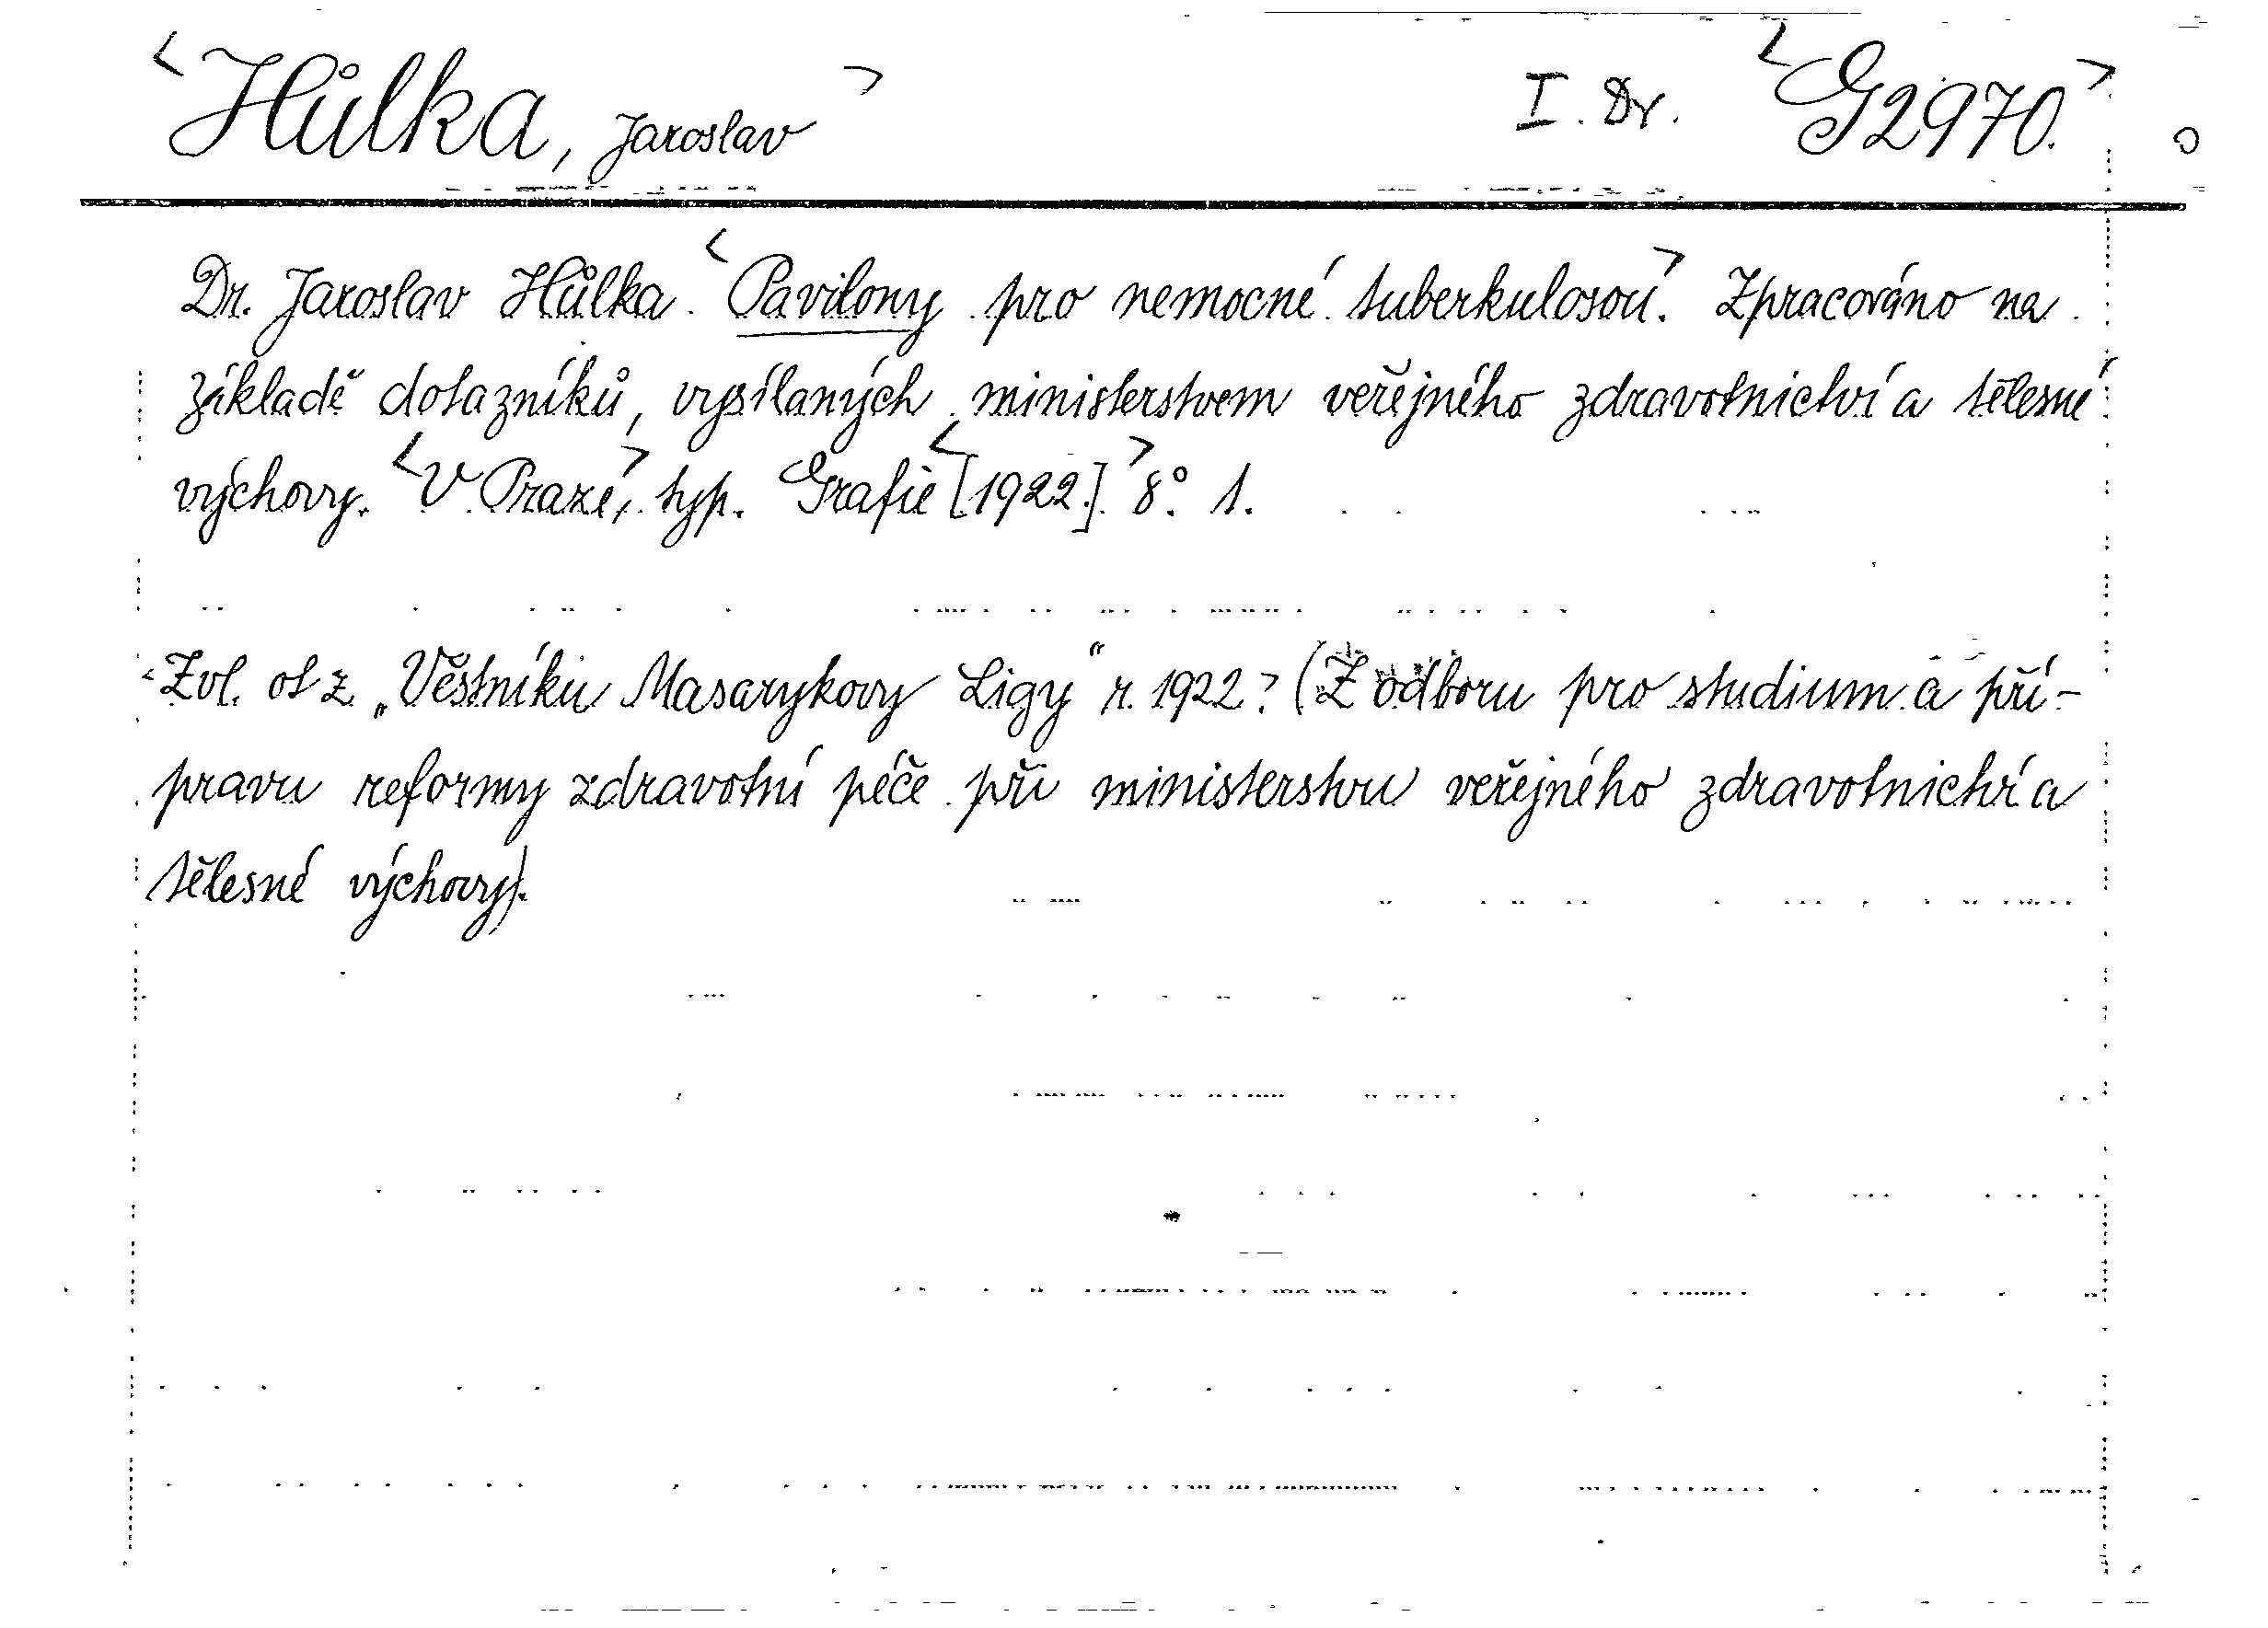 <Hůlka, Jaroslav> I. Dr. <G2970.>
Dr. Jaroslav Hůlka. <Pavilony pro nemocné tuberkulosou.> Zpracováno na
základě dotazníků, vysílaných ministerstvem veřejného zdravotnictví a tělesné
výchovy. <V Praze,> typ. Grafie <[1922].> 8°. 1.
Zvl. ot z „Věstníku Masarykovy Ligy" r. 1922. (Z odboru pro studium a pří-
pravu reformy zdravotní péče při ministerstvu veřejného zdravotnictví a
tělesné výchovy).